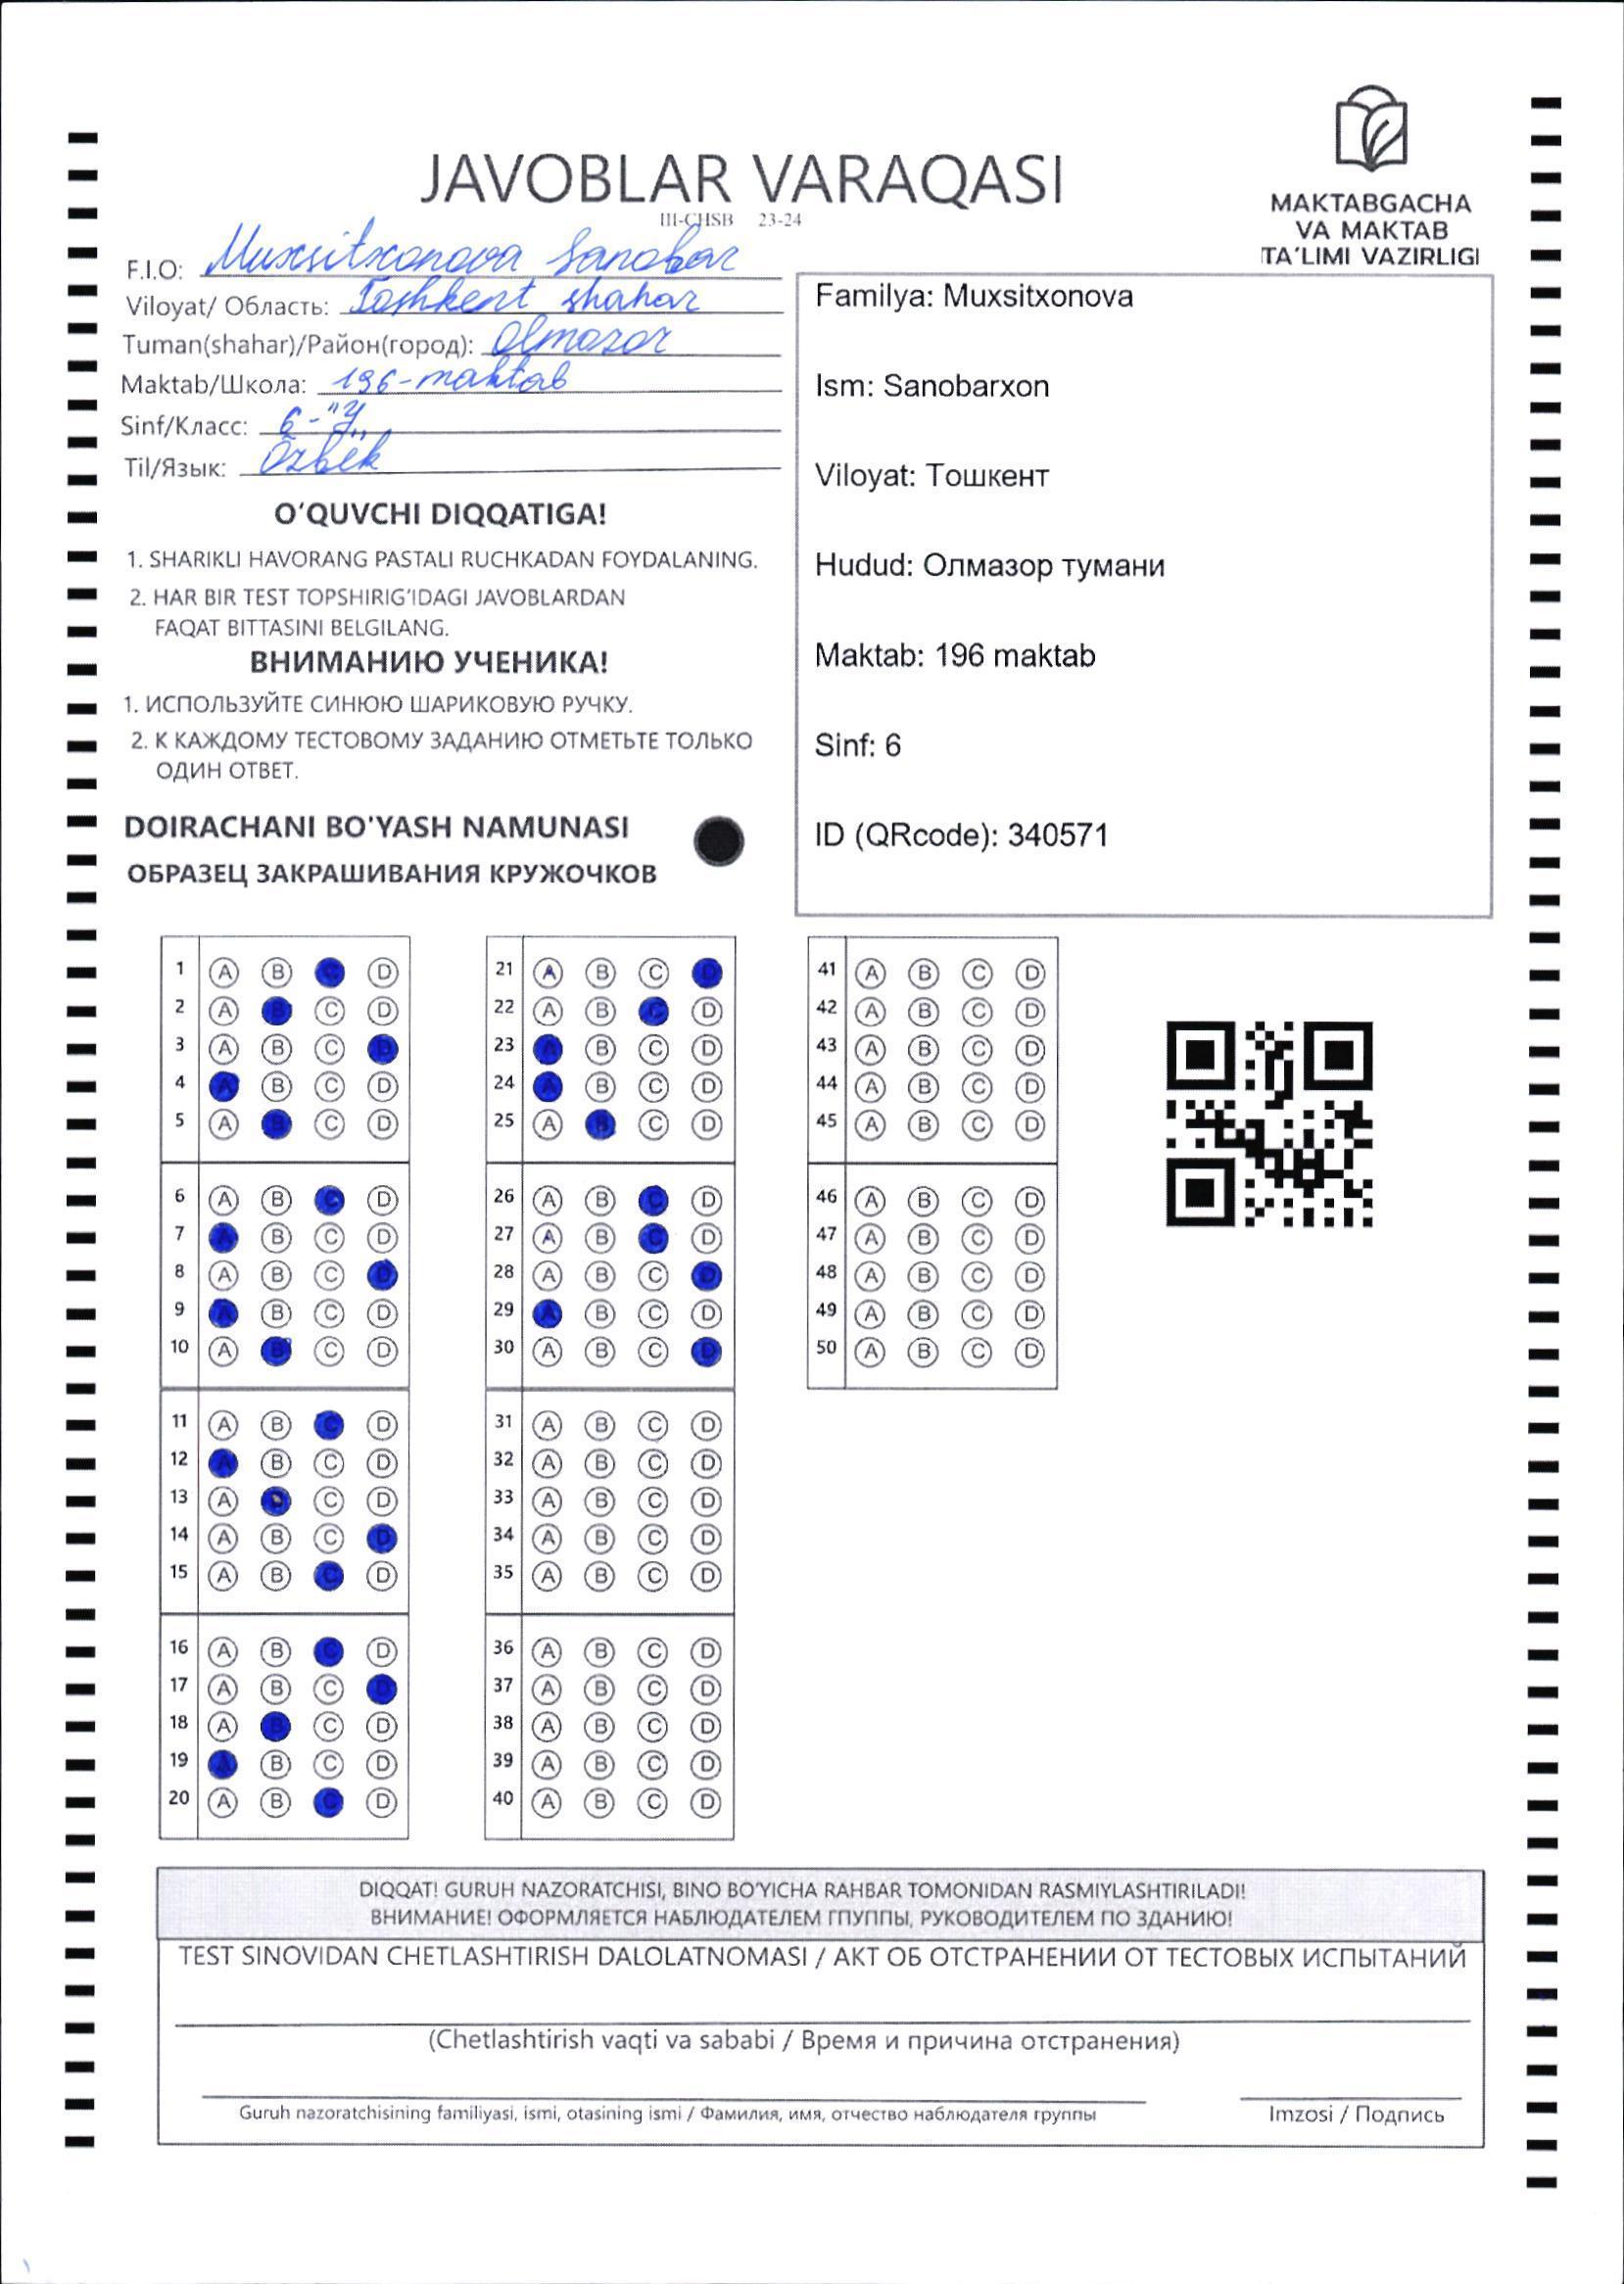 JAVOBLAR VARAQASI
III-CHSB 23-24
MAKTABGACHA
VA MAKTAB
TA'LIMI VAZIRLIGI
F.I.O: Muxsitxonova Sanobar
Viloyat/ Область: Toshkent shahar
Tuman(shahar)/Район(город): Olmazor
Maktab/Школа: 196-maktab
Sinf/Класс: 6-"У„
Til/Язык: Özbek
O'QUVCHI DIQQATIGA!
1. SHARIKLI HAVORANG PASTALI RUCHKADAN FOYDALANING.
2. HAR BIR TEST TOPSHIRIG'IDAGI JAVOBLARDAN
FAQAT BITTASINI BELGILANG.
ВНИМАНИЮ УЧЕНИКА!
1. ИСПОЛЬЗУЙТЕ СИНЮЮ ШАРИКОВУЮ РУЧКУ.
2. К КАЖДОМУ ТЕСТОВОМУ ЗАДАНИЮ ОТМЕТЬТЕ ТОЛЬКО
ОДИН ОТВЕТ.
DOIRACHANI BO'YASH NAMUNASI
ОБРАЗЕЦ ЗАКРАШИВАНИЯ КРУЖОЧКОВ
Familya: Muxsitxonova
Ism: Sanobarxon
Viloyat: Тошкент
Hudud: Олмазор тумани
Maktab: 196 maktab
Sinf: 6
ID (QRcode): 340571
1 A B C D
2 A B C D
3 A B C D
4 A B C D
5 A B C D
6 A B C D
7 A B C D
8 A B C D
9 A B C D
10 A B C D
11 A B C D
12 A B C D
13 A B C D
14 A B C D
15 A B C D
16 A B C D
17 A B C D
18 A B C D
19 A B C D
20 A B C D
21 A B C D
22 A B C D
23 A B C D
24 A B C D
25 A B C D
26 A B C D
27 A B C D
28 A B C D
29 A B C D
30 A B C D
31 A B C D
32 A B C D
33 A B C D
34 A B C D
35 A B C D
36 A B C D
37 A B C D
38 A B C D
39 A B C D
40 A B C D
41 A B C D
42 A B C D
43 A B C D
44 A B C D
45 A B C D
46 A B C D
47 A B C D
48 A B C D
49 A B C D
50 A B C D
DIQQAT! GURUH NAZORATCHISI, BINO BO'YICHA RAHBAR TOMONIDAN RASMIYLASHTIRILADI!
ВНИМАНИЕ! ОФОРМЛЯЕТСЯ НАБЛЮДАТЕЛЕМ ГПУППЫ, РУКОВОДИТЕЛЕМ ПО ЗДАНИЮ!
TEST SINOVIDAN CHETLASHTIRISH DALOLATNOMASI / АКТ ОБ ОТСТРАНЕНИИ ОТ ТЕСТОВЫХ ИСПЫТАНИЙ
(Chetlashtirish vaqti va sababi / Время и причина отстранения)
Guruh nazoratchisining familiyasi, ismi, otasining ismi / Фамилия, имя, отчество наблюдателя группы
Imzosi / Подпись